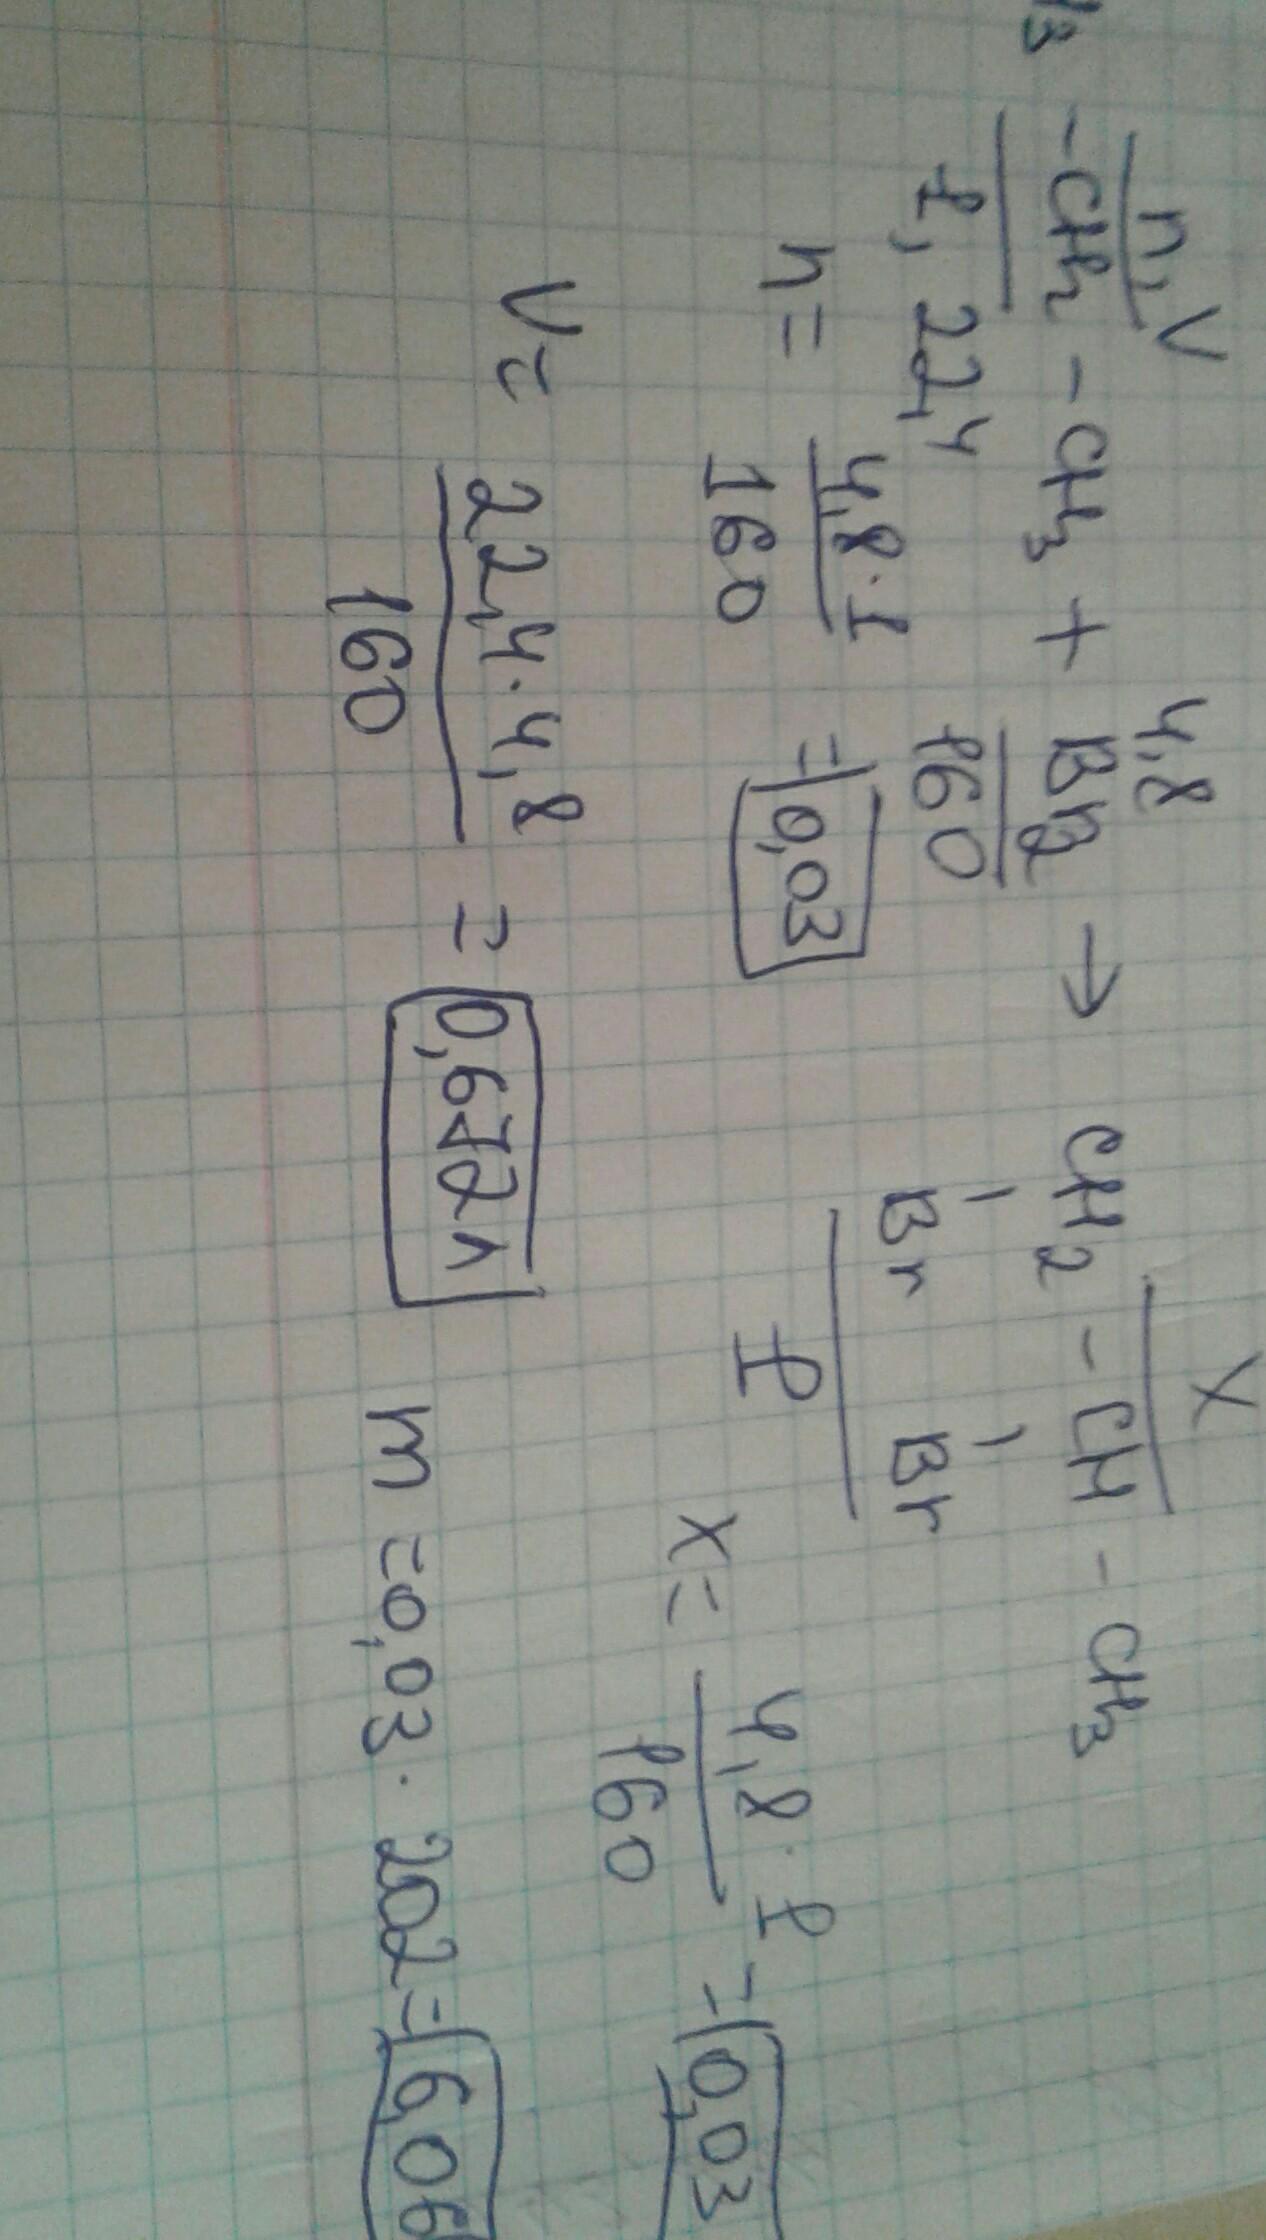 n, V 4,8 x
-CH₂ - CH₃ + Br₂ → CH₂ - CH - CH₃
1, 22,4 160 Br Br
1
n = 4,8·1 / 160 = 0,03 x = 4,8·1 / 160 = 0,03
V = 22,4·4,8 / 160 = 0,672л m = 0,03·202 = 6,06